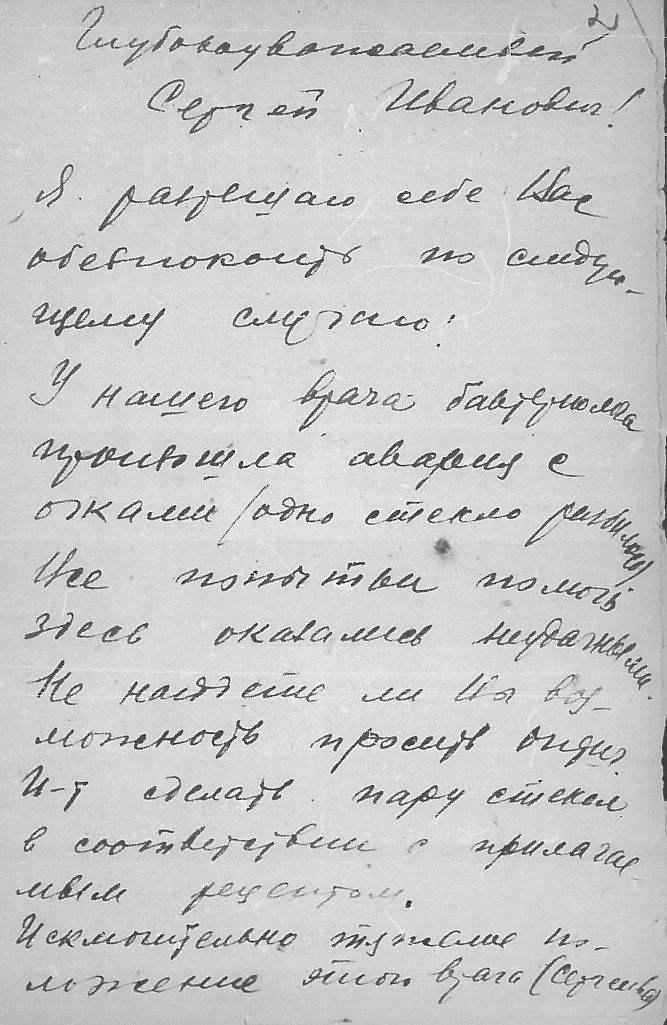 2
Глубокоуважаемый
Сергей Иванович!
Я разрешаю себе Вас
обеспокоить по следую-
щему случаю:
У нашего врача бактериолога
произошла авария с
очками /одно стекло разбилось/
Все попытки помочь
здесь оказались неудачными.
Не найдете ли Вы воз-
можность просить
И-т сделать пару стекол
в соответствии с прилагае-
мым рецептом.
Исключительно тяжелое по-
ложение этого врача